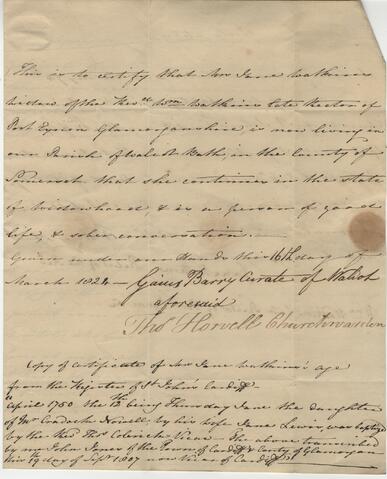 This is to certify that Mrs Jane Watkins
widow of the Revd Wm Watkins late Rector of
Port Eynon Glamorganshire is now living in
our Parish of Walcot Bath, in the County of
Somerset that she continues in the state
of widowhood, & is a person of good
life, & sober conversation—
Given under our Hands this 16th day of
March 1824 — Gaius Barry Curate of Walcot
aforesaid
Thos Horvell Churchwarden
Copy of certificate of Mrs Jane Watkins's age
from the Register of St John's Cardiff—
"April 1750 the 12th being Thursday Jane the daughter
of Mr Cradock Nowell by his wife Jane Lewis, was baptized
by the Revd Thos Vicar— The above transcribed
by me John Jones of the Town of Cardiff & County of Glamorgan
this 19 day of Septr 1807 Vicar of Cardiff"